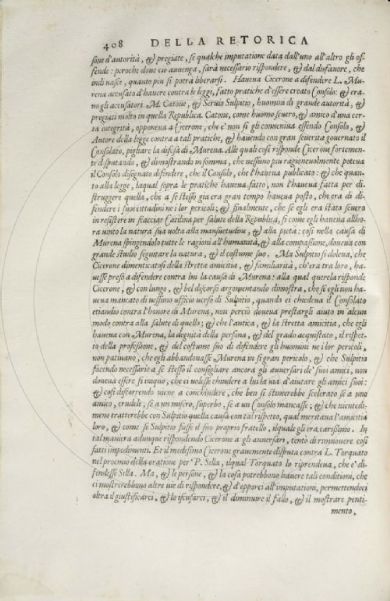 408 DELLA RETORICA
sone d'autorità, & pregiate, se qualche imputatione data dall'uno all'altro gli of-
fende: peroche dove ciò avvenga, sarà necessario rispondere, & dal disonore, che
indi nasce, quanto più si potrà liberarsi. Haveva Cicerone a difendere L. Mu-
rena accusato d'havere contra le leggi, fatto pratiche d'essere creato Consolo: & era-
no gli accusatori M. Catone, & Servio Sulpitio, huomini di grande autorità, &
pregiati molto in quella Republica. Catone, come huomo severo, & amico d'una cer-
ta integrità, opponeva a Cicerone, che e' non si gli conveniva essendo Consolo, &
Autore della legge contra a tal pratiche, & havendo con gran severità governato il
Consolato, pigliare la difesa di Murena. Alle quai cose risponde Cicerone fortemen-
te disputando, & dimostrando in somma, che nessuno più ragionevolmente poteva
il Consolo disegnato difendere, che il Consolo, che l'haveva publicato: & che quan-
to alla legge, laqual sopra le pratiche haveva fatto, non l'haveva fatta per di-
struggere quella, che a se stesso già era gran tempo haveva posto, che era di di-
fendere i suoi cittadini ne i lor pericoli; & finalmente, che se egli era stato severo
in resistere in faccia a Catilina per salute della Republica, si come egli haveva allho-
ra vinto la natura sua volta alla mansuetudine, & alla pietà: così nella causa di
Murena spingendolo tutte le ragioni all'humanità, & alla compassione, doveva con
grande studio seguitare la natura, & il costume suo. Ma Sulpitio si doleva, che
Cicerone dimenticatosi della stretta amicitia, & familiarità, ch'era tra loro, ha-
vesse presa a difendere contra lui la causa di Murena: alla qual querela risponde
Cicerone, & con lungo, & bel discorso argomentando dimostra, che se egli non ha-
veva mancato di nessuno ufficio verso di Sulpitio, quando ei chiedeva il Consolato
etiandio contra l'honore di Murena, non perciò doveva prestargli aiuto in alcun
modo contra alla salute di quello; & che l'antica, & la stretta amicitia, che egli
haveva con Murena, la dignità della persona, & del grado acquistato, il rispet-
to della professione, & del costume suo di difendere gli huomini ne i lor pericoli,
non pativano, che egli abbandonasse Murena in sì gran pericolo, & che Sulpitio
facendo necessario a se stesso il consigliare ancora gli avversari de' suoi amici, non
doveva essere sì iniquo, che ei volesse chiudere a lui la via d'aiutare gli amici suoi:
& così discorrendo viene a conchiudere, che ben si stimerebbe scelerato se a uno
amico, crudele, se a un misero, superbo, se a un Consolo mancasse, & che nientedi-
meno tratterebbe con Sulpitio quella causa con tal rispetto, qual meritava l'amicitia
loro, & come se Sulpitio fusse il suo proprio fratello, ilquale gli era carissimo. In
tal maniera adunque rispondendo Cicerone a gli avversari, tentò di rimuovere così
fatti impedimenti. Et il medesimo Cicerone gravemente disputa contra L. Torquato
nel proemio della oratione per P. Silla, ilqual Torquato lo riprendeva, che e' di-
fendesse Silla. Ma, & le persone, & la cosa potrebbono havere tali conditioni, che
ci mostrerebbono altre vie di rispondere, & d'opporci all'imputationi, permettendoci
oltra il giustificarci, & lo iscusarci, & il diminuire il fallo, & il mostrare penti-
mento,